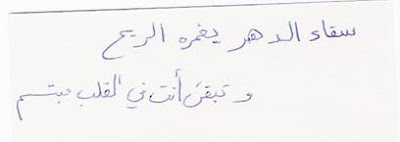 سقاء الدهر يغمره الريح
و تبقى أنت في القلب مبتسم